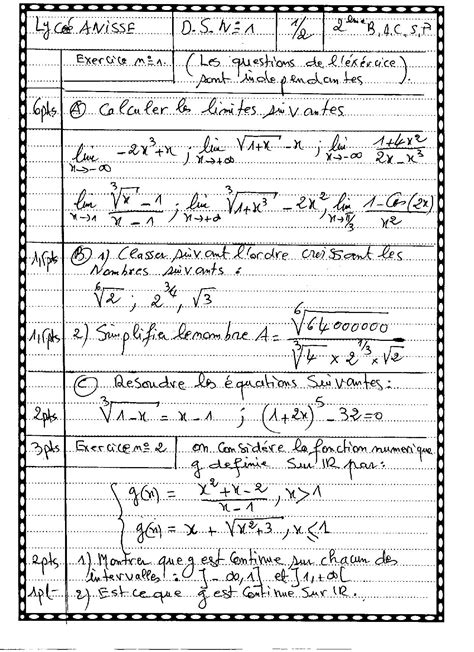 Lycée ANISSE D.S. N=1 1/2 2ème B.A.C.S.P
Exercice n=1. (Les questions de l'éxércice
sont indépendantes).
6pts Ⓐ Calculer les limites suivantes
lim x→-∞ -2x³+x ; lim x→+∞ √(1+x) - x ; lim x→-∞ (1+4x²)/(2x-x³)
lim x→1 (∛x - 1)/(x-1) ; lim x→+∞ ∛(1+x³) - 2x² ; lim x→π/3 (1-Cos(2x))/x²
1,5pts Ⓑ 1) Classer suivant l'ordre croissant les
Nombres suivants :
⁶√2 ; 2^(3/4), √3
1,5pts 2) Simplifier le nombre A = ⁶√64000000 / (∛4 × 2^(1/3) × √2)
Ⓒ Resoudre les équations Suivantes :
2pts ∛(1-x) = x-1 ; (1+2x)⁵ - 32 = 0
3pts Exercice n=2 on Considére la fonction numerique
g definie Sur IR par :
{ g(x) = (x²+x-2)/(x-1), x>1
g(x) = x + √(x²+3), x≤1
2pts 1) Montrer que g est Continue sur chacun des
intervalles : ]-∞,1] et ]1,+∞[
1pt 2) Est ce que g est Continue Sur IR.